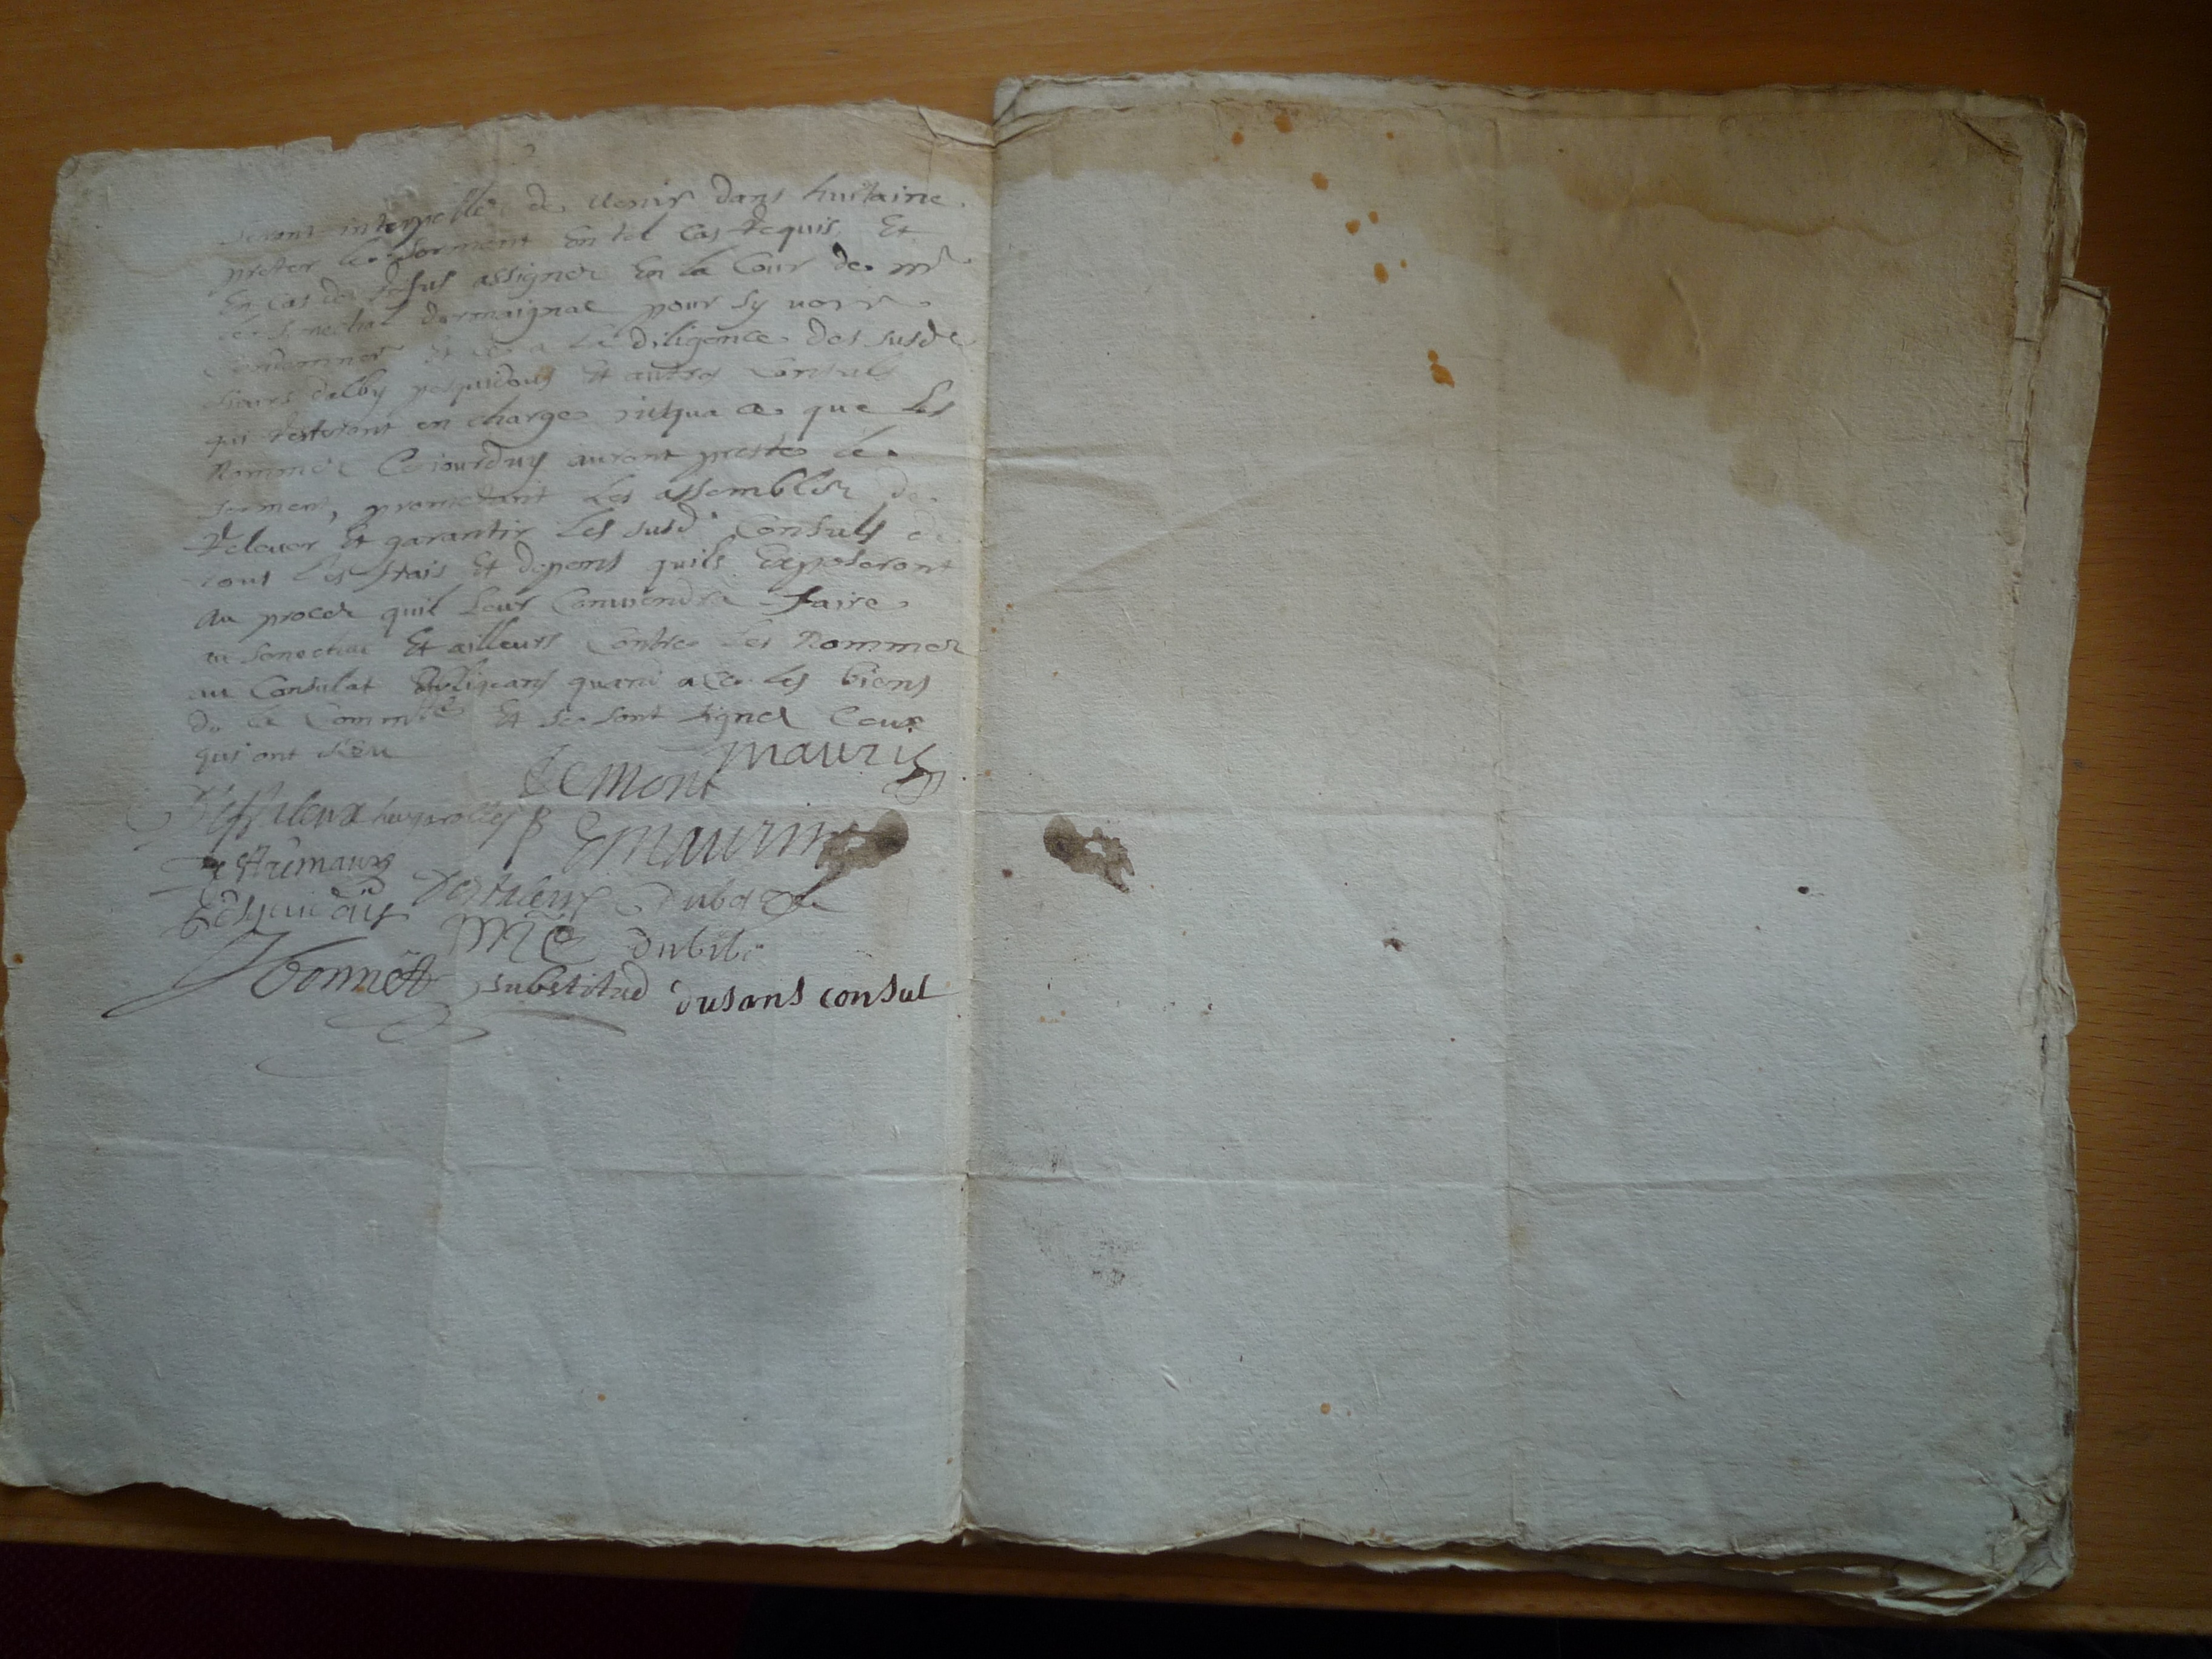 seront interpellés de venir dans huitaine
prester le serment en tel cas requis Et
En cas de refus assignés En la Cour de mr
le senechal darmaignac pour sy voir
Condemner Et ce a la diligence des susdts
sieurs dalby pesquidous Et autres Consuls
qui resteront en charge jusqua ce que Les
Nommés Ce jourdhuy auront presté le
serment, prometant Les assemblés de
relever Et garantir Les susd. Consuls de
tous les frais Et depens quils Exposeront
Au procés quil Leur Conviendra faire
au senechal Et ailleurs Contre Les Nommés
au Consulat obligeans quand a ce les biens
de la Commté Et se sont signés Ceux
qui ont sceu
mauris
Lemont
Emaurin
pesquidous
dubarde
dubibe
bonnet substitud dusans consul